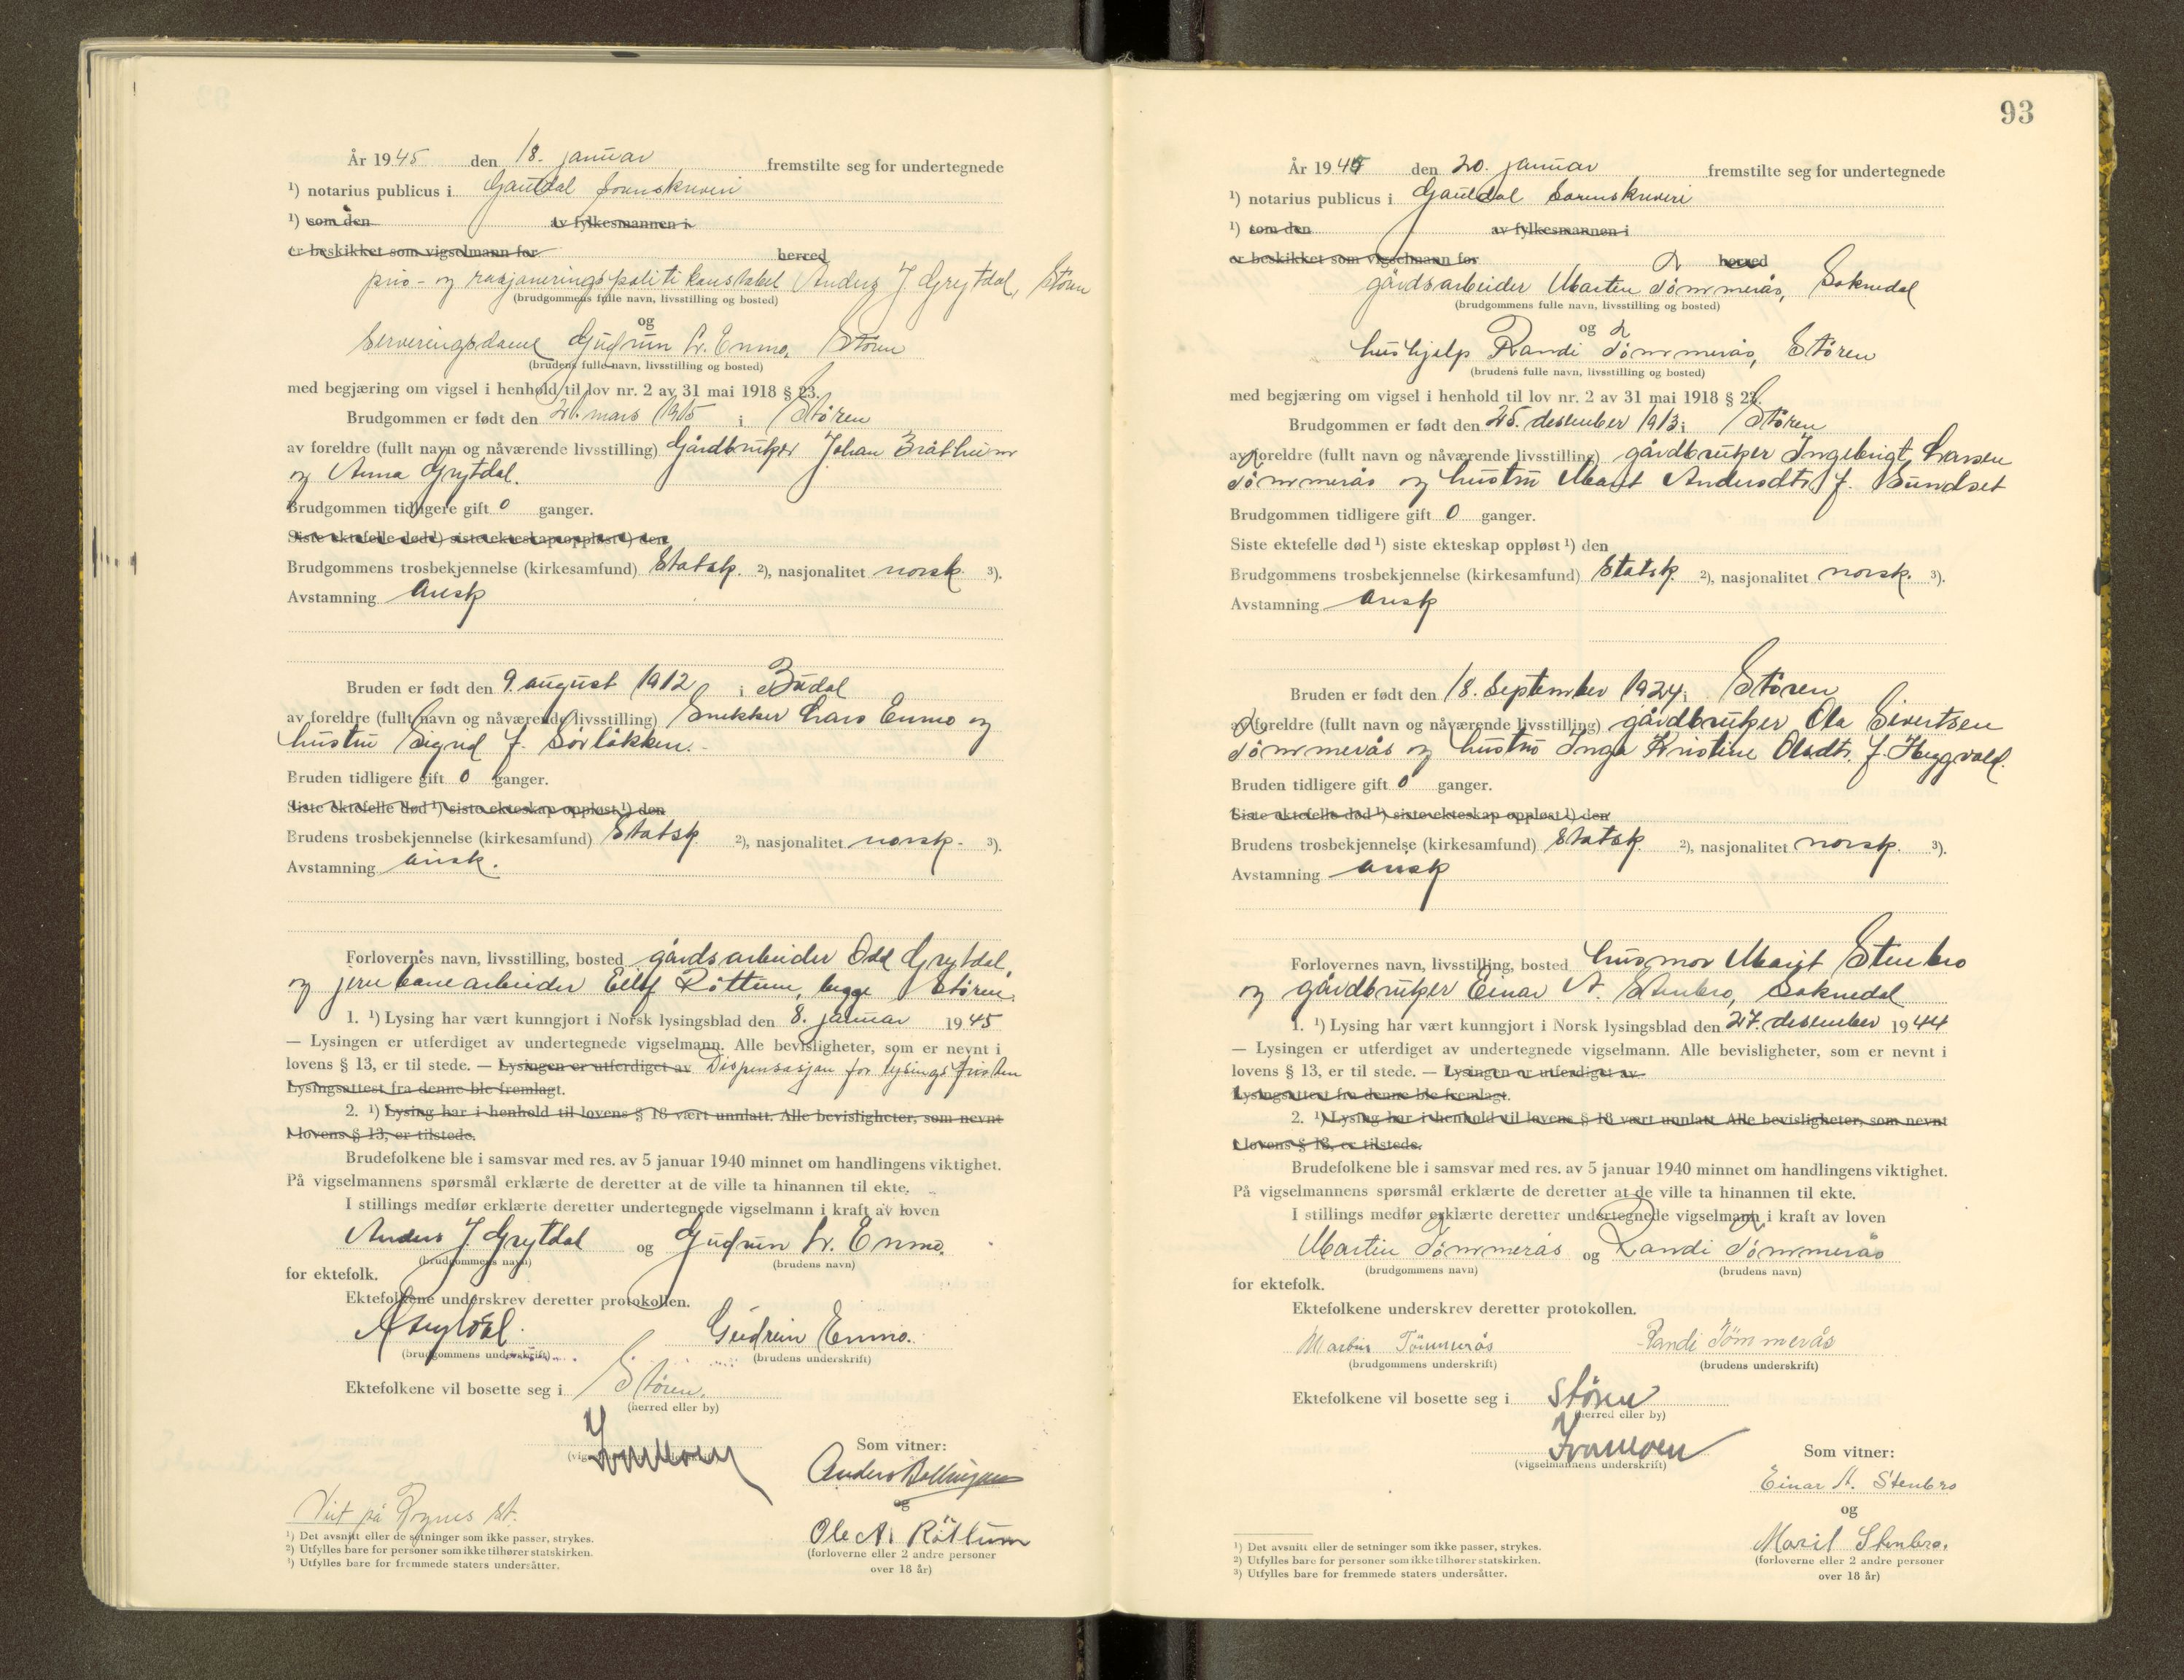 År 1945 den 18. januar fremstilte seg for undertegnede
¹) notarius publicus i Gauldal sorenskriveri
¹) som den av fylkesmannen i
er beskikket som vigselmann for herred
pris- og rasjoneringspolitikonstabel Anders J Grytdal, Støren
(brudgommens fulle navn, livsstilling og bosted)
og
Serveringsdame Gudrun Lr. Enmo, Støren
(brudens fulle navn, livsstilling og bosted)
med begjæring om vigsel i henhold til lov nr. 2 av 31 mai 1918 § 23.
Brudgommen er født den mars 1915 i Støren
av foreldre (fullt navn og nåværende livsstilling) Gårdbruker Johan Bråttheim
og Anna Grytdal.
Brudgommen tidligere gift 0 ganger.
Siste ektefelle død ¹) siste ekteskap oppløst ¹) den
Brudgommens trosbekjennelse (kirkesamfund) Statsk. ²), nasjonalitet norsk ³).
Avstamning arisk
Bruden er født den 9. august 1912 i Budal
av foreldre (fullt navn og nåværende livsstilling) Snekker Lars Enmo og
hustru Sigrid f. Sørløkken.
Bruden tidligere gift 0 ganger.
Siste ektefelle død ¹) siste ekteskap oppløst ¹) den
Brudens trosbekjennelse (kirkesamfund) Statsk. ²), nasjonalitet norsk. ³).
Avstamning arisk.
Forlovernes navn, livsstilling, bosted gårdsarbeider Odd Grytdal,
og jernbanearbeider Eilif Røttum, begge Støren.
1. ¹) Lysing har vært kunngjort i Norsk lysingsblad den 8. januar 1945
— Lysingen er utferdiget av undertegnede vigselmann. Alle bevisligheter, som er nevnt i
lovens § 13, er til stede. — Lysingen er utferdiget av Dispensasjon for lysingsfristen
Lysingsattest fra denne ble fremlagt.
2. ¹) Lysing har i henhold til lovens § 18 vært unnlatt. Alle bevisligheter, som nevnt
i lovens § 13, er tilstede.
Brudefolkene ble i samsvar med res. av 5 januar 1940 minnet om handlingens viktighet.
På vigselmannens spørsmål erklærte de deretter at de ville ta hinannen til ekte.
I stillings medfør erklærte deretter undertegnede vigselmann i kraft av loven
Anders J. Grytdal og Gudrun Lr. Enmo.
(brudgommens navn) (brudens navn)
for ektefolk.
Ektefolkene underskrev deretter protokollen.
A Grytdal. Gudrun Enmo.
(brudgommens underskrift) (brudens underskrift)
Ektefolkene vil bosette seg i Støren.
(herred eller by)
Som vitner:
(vigselmannens underskrift)
Anders
og
Viet på Rognes st.
Ole A. Røttum
(forloverne eller 2 andre personer
over 18 år)
¹) Det avsnitt eller de setninger som ikke passer, strykes.
²) Utfylles bare for personer som ikke tilhører statskirken.
³) Utfylles bare for fremmede staters undersåtter.
93
År 1945 den 20. januar fremstilte seg for undertegnede
¹) notarius publicus i Gauldal Sorenskriveri
¹) som den av fylkesmannen i
er beskikket som vigselmann for herred
gårdsarbeider Martin Tømmerås, Soknedal
(brudgommens fulle navn, livsstilling og bosted)
og
hushjelp Randi Tømmerås, Støren
(brudens fulle navn, livsstilling og bosted)
med begjæring om vigsel i henhold til lov nr. 2 av 31 mai 1918 § 23.
Brudgommen er født den 25. desember 1913 i Støren
av foreldre (fullt navn og nåværende livsstilling) gårdbruker Ingebrigt Larsen
Tømmerås og hustru Marit Andersdtr. f. Sundset
Brudgommen tidligere gift 0 ganger.
Siste ektefelle død ¹) siste ekteskap oppløst ¹) den
Brudgommens trosbekjennelse (kirkesamfund) Statsk. ²), nasjonalitet norsk. ³).
Avstamning arisk
Bruden er født den 18. September 1924 i Støren
av foreldre (fullt navn og nåværende livsstilling) gårdbruker Ola Sivertsen
Tømmerås og hustru Inga Kristine Olsdtr. f. Hyggvold.
Bruden tidligere gift 0 ganger.
Siste ektefelle død ¹) siste ekteskap oppløst ¹) den
Brudens trosbekjennelse (kirkesamfund) Statsk. ²), nasjonalitet norsk. ³).
Avstamning arisk
Forlovernes navn, livsstilling, bosted husmor Marit Stenbro
og gårdbruker Einar A. Stenbro, Soknedal
1. ¹) Lysing har vært kunngjort i Norsk lysingsblad den 27. desember 1944
— Lysingen er utferdiget av undertegnede vigselmann. Alle bevisligheter, som er nevnt i
lovens § 13, er til stede. — Lysingen er utferdiget av
Lysingsattest fra denne ble fremlagt.
2. ¹) Lysing har i henhold til lovens § 18 vært unnlatt. Alle bevisligheter, som nevnt
i lovens § 13, er tilstede.
Brudefolkene ble i samsvar med res. av 5 januar 1940 minnet om handlingens viktighet.
På vigselmannens spørsmål erklærte de deretter at de ville ta hinannen til ekte.
I stillings medfør erklærte deretter undertegnede vigselmann i kraft av loven
Martin Tømmerås og Randi Tømmerås
(brudgommens navn) (brudens navn)
for ektefolk.
Ektefolkene underskrev deretter protokollen.
Martin Tömmerås Randi Tömmerås
(brudgommens underskrift) (brudens underskrift)
Ektefolkene vil bosette seg i Støren
(herred eller by)
Som vitner:
(vigselmannens underskrift)
Einar A. Stenbro
og
Marit Stenbro.
(forloverne eller 2 andre personer
over 18 år)
¹) Det avsnitt eller de setninger som ikke passer, strykes.
²) Utfylles bare for personer som ikke tilhører statskirken.
³) Utfylles bare for fremmede staters undersåtter.